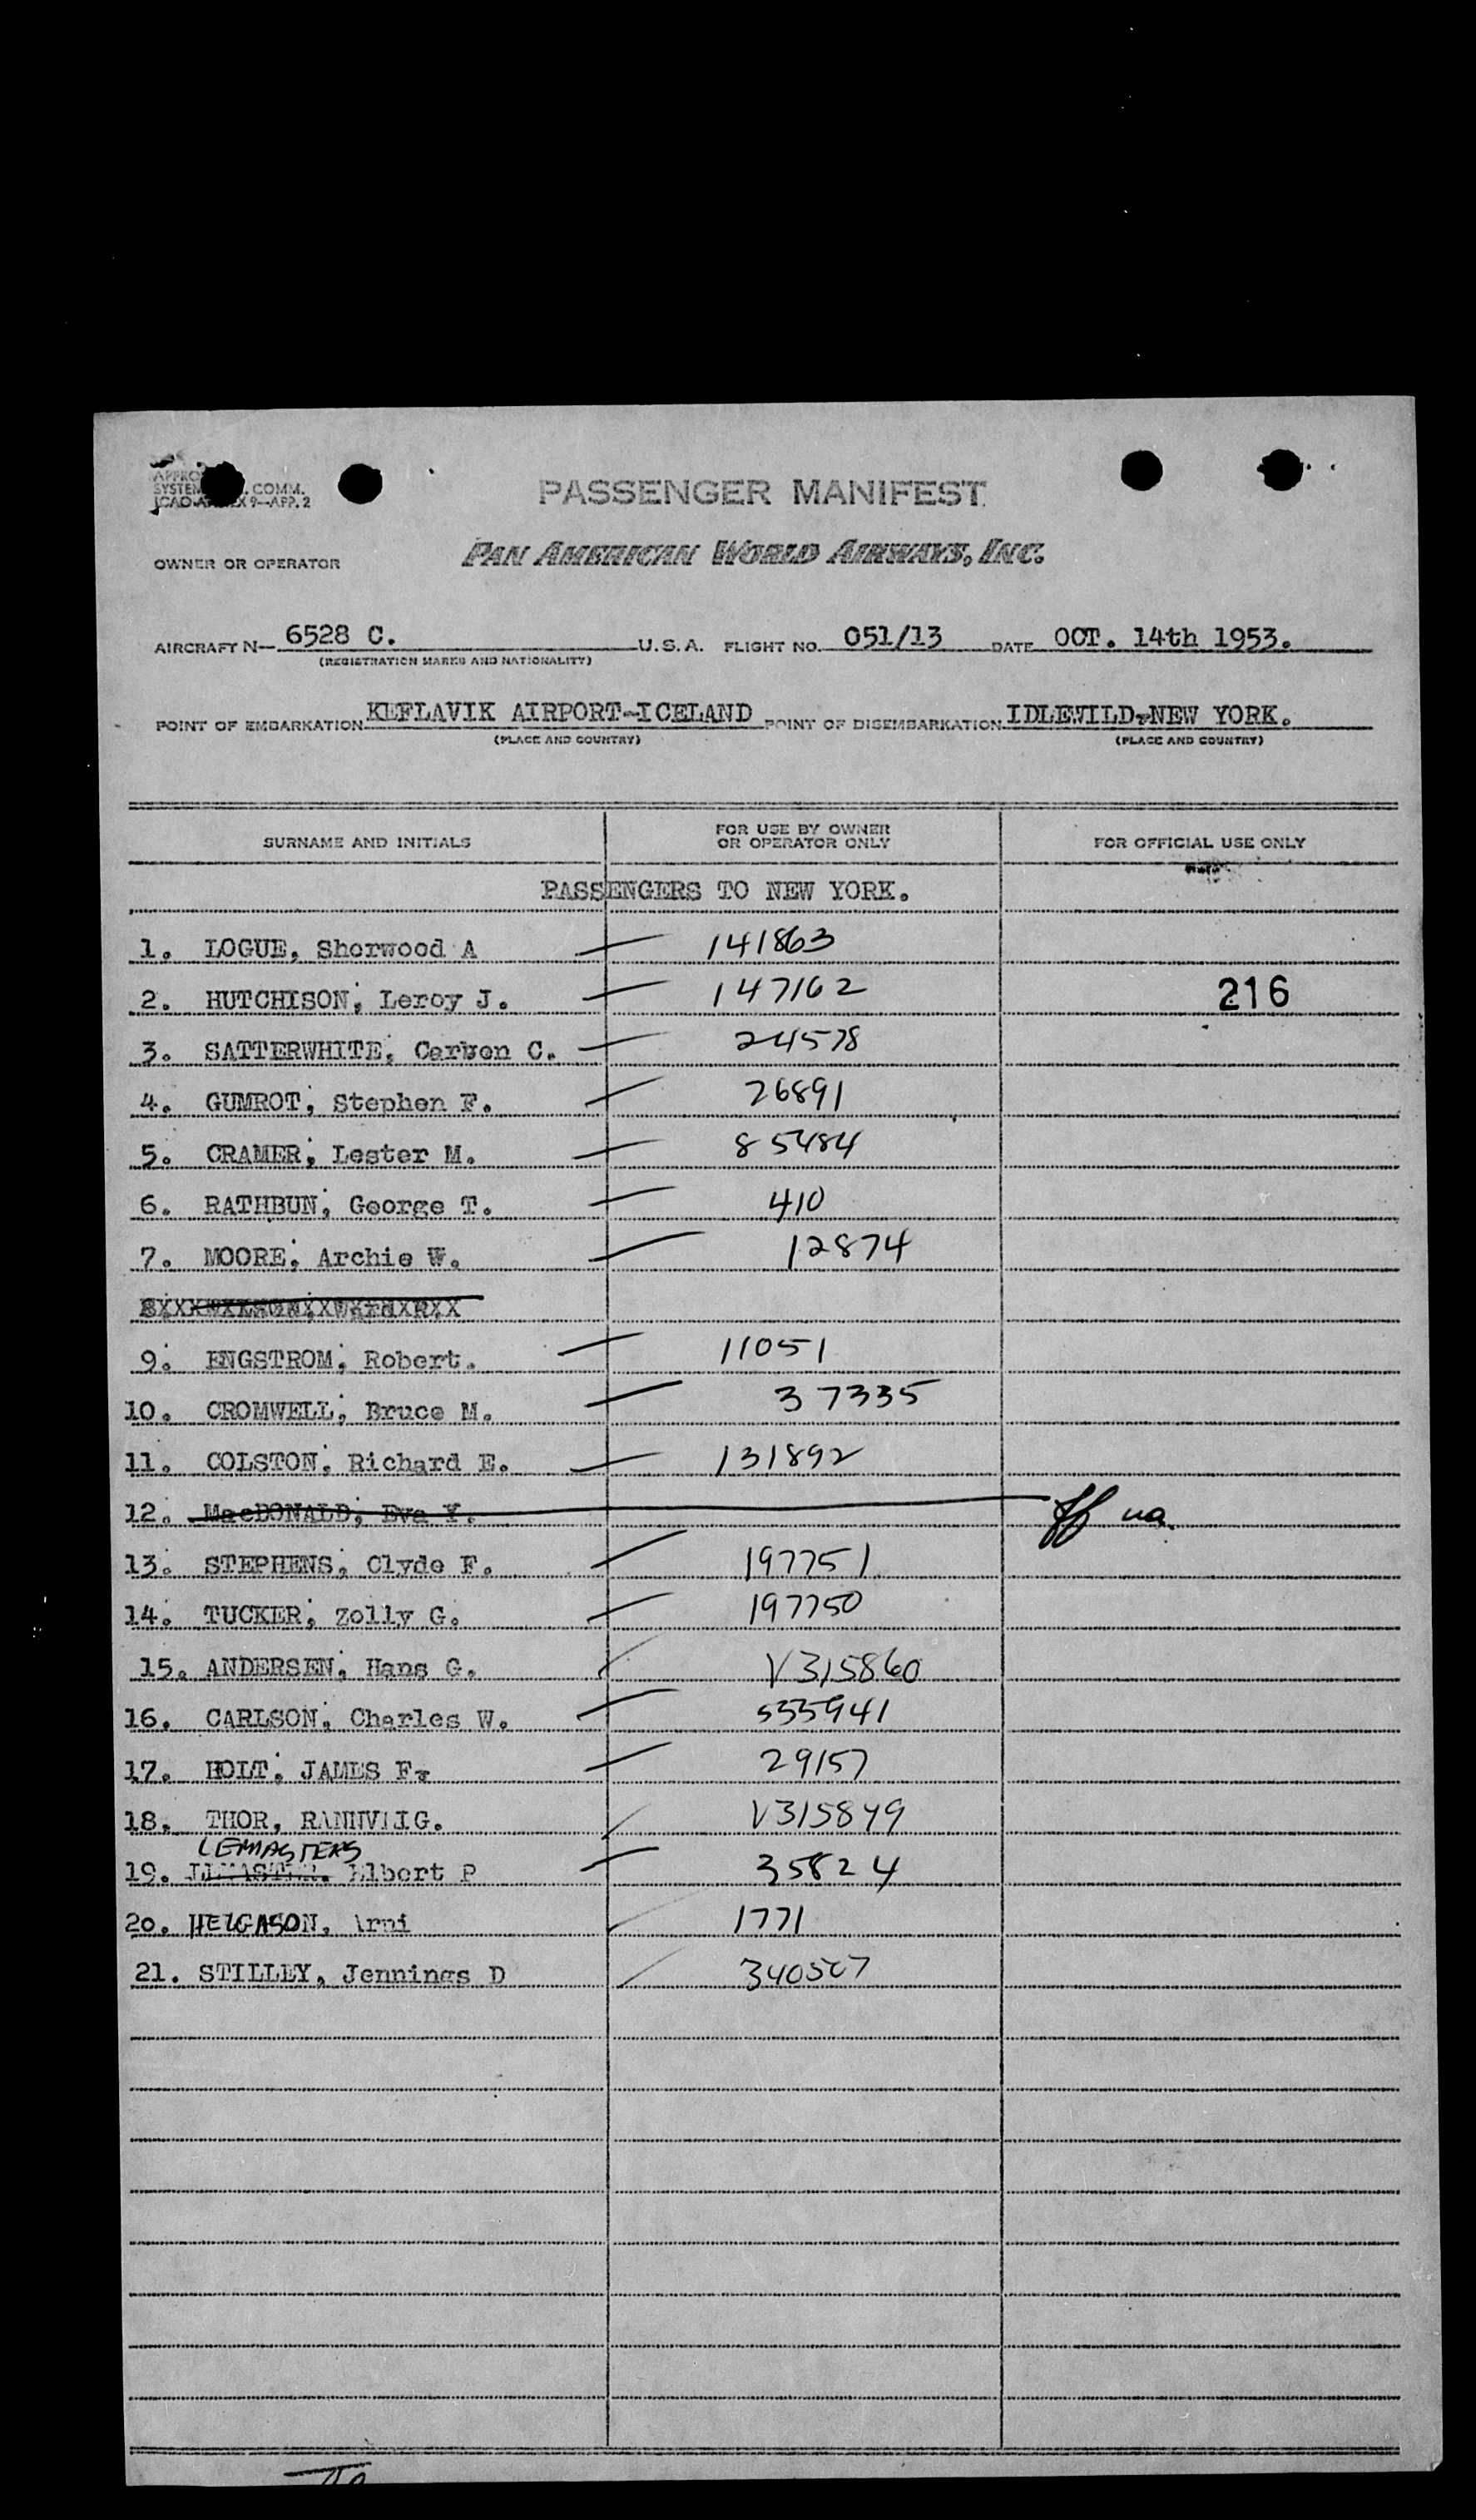 PASSENGER MANIFEST
COMM.
ICAO 9—APP. 2
OWNER OR OPERATOR PAN AMERICAN WORLD AIRWAYS, INC.
AIRCRAFT N— 6528 C. U.S.A. FLIGHT NO. 051/13 DATE OCT. 14th 1953.
(REGISTRATION MARKS AND NATIONALITY)
POINT OF EMBARKATION KEFLAVIK AIRPORT-ICELAND POINT OF DISEMBARKATION IDLEWILD-NEW YORK.
(PLACE AND COUNTRY) (PLACE AND COUNTRY)
SURNAME AND INITIALS FOR USE BY OWNER OR OPERATOR ONLY FOR OFFICIAL USE ONLY
PASSENGERS TO NEW YORK.
1. LOGUE, Sherwood A 141863
2. HUTCHISON, Leroy J. 147162 216
3. SATTERWHITE, C. 24578
4. GUMROT, Stephen F. 26891
5. CRAMER, Lester M. 85484
6. RATHBUN, George T. 410
7. MOORE, Archie W. 12874
9. ENGSTROM, Robert. 11051
10. CROMWELL, Bruce M. 37335
11. COLSTON, Richard E. 131892
12. MacDONALD, Eva Y.
13. STEPHENS, Clyde F. 197751
14. TUCKER, Zolly G. 197750
15. ANDERSEN, Hans G. V315860
16. CARLSON, Charles W. 535941
17. HOLT, JAMES F. 29157
18. THOR, G. V315849
LEMASTERS
19. Elbert P 35824
20. HELGASON, Arni 1771
21. STILLEY, Jennings D 340507